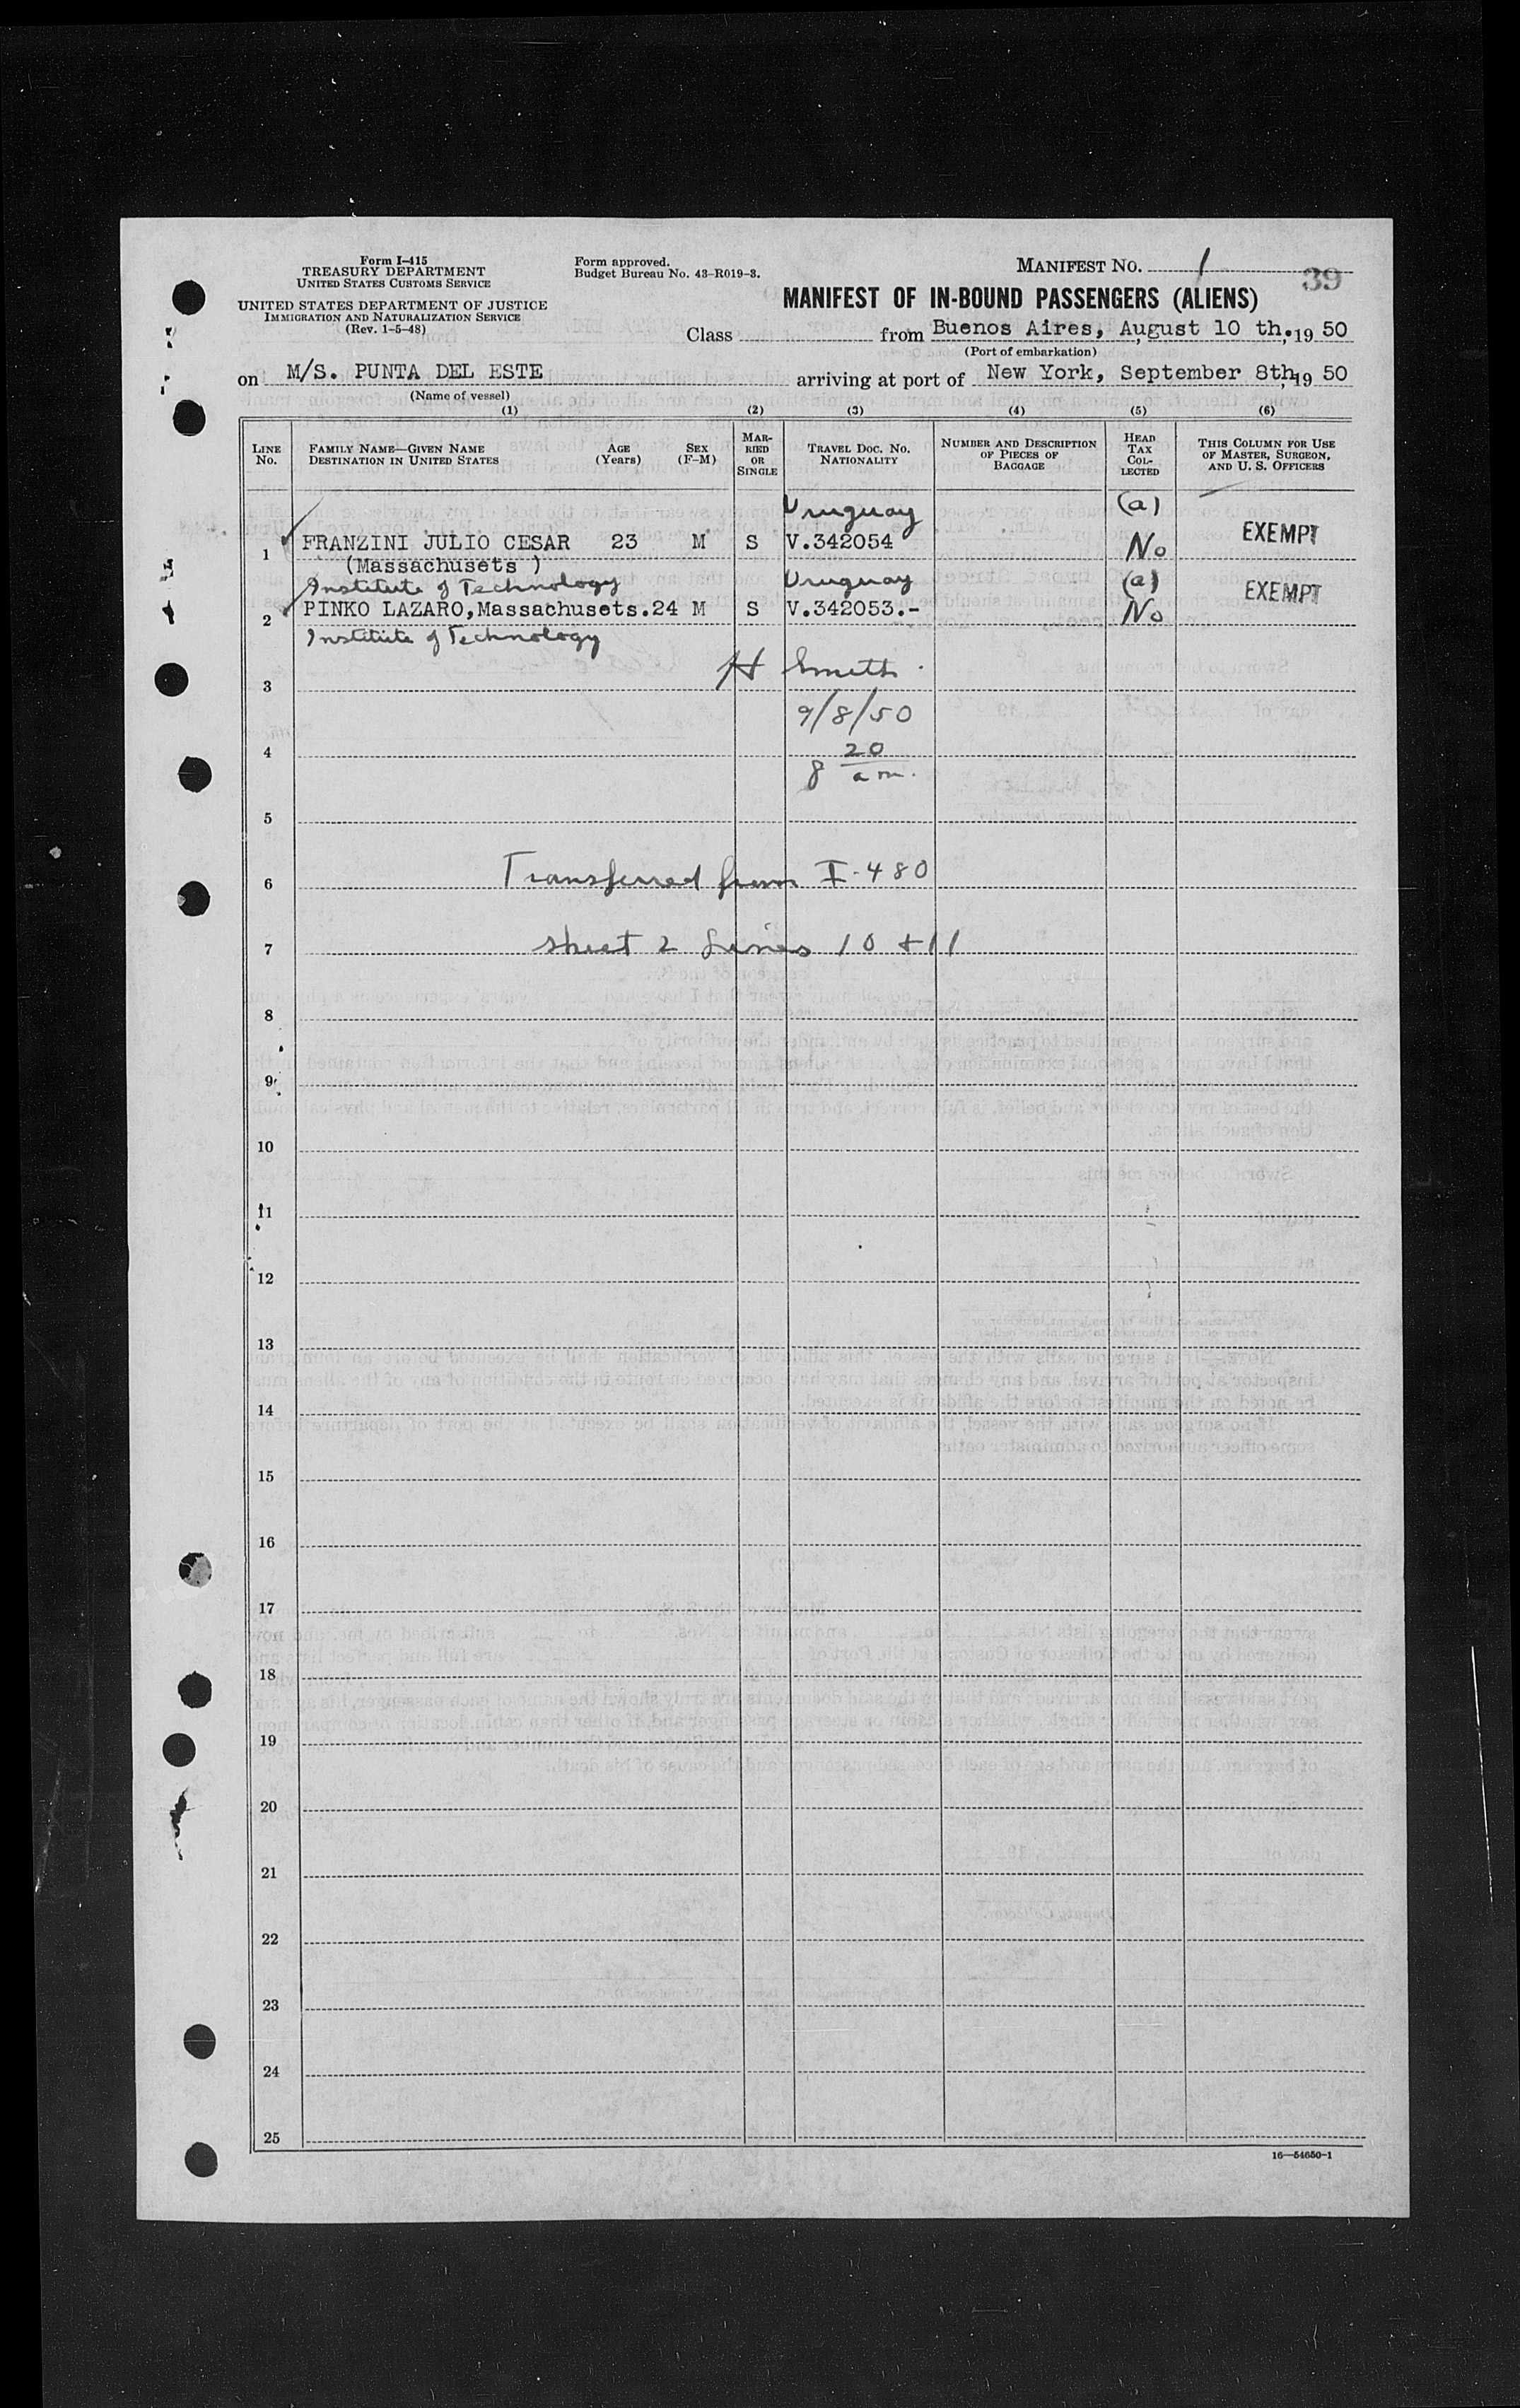 Form I-415
TREASURY DEPARTMENT
UNITED STATES CUSTOMS SERVICE
UNITED STATES DEPARTMENT OF JUSTICE
IMMIGRATION AND NATURALIZATION SERVICE
(Rev. 1-5-48)
Form approved.
Budget Bureau No. 43-R019-3.
MANIFEST NO. 1
39
MANIFEST OF IN-BOUND PASSENGERS (ALIENS)
Class from Buenos Aires, August 10 th. 19 50
(Port of embarkation)
on M/S. PUNTA DEL ESTE arriving at port of New York, September 8th, 19 50
(Name of vessel)
(1) (2) (3) (4) (5) (6)
LINE No. FAMILY NAME—GIVEN NAME DESTINATION IN UNITED STATES AGE (Years) SEX (F-M) MARRIED OR SINGLE TRAVEL DOC. NO. NATIONALITY NUMBER AND DESCRIPTION OF PIECES OF BAGGAGE HEAD TAX COLLECTED THIS COLUMN FOR USE OF MASTER, SURGEON, AND U. S. OFFICERS
Uruguay (a)
1 FRANZINI JULIO CESAR 23 M S V.342054 No EXEMPT
(Massachusets )
Institute of Technology Uruguay (a)
2 PINKO LAZARO,Massachusets.24 M S V.342053.- No EXEMPT
Institute of Technology
H Smith
3
9/8/50
4
8 20 a m.
5
6 Transferred from I-480
7 sheet 2 Lines 10 + 11
8
9
10
11
12
13
14
15
16
17
18
19
20
21
22
23
24
25
16—54650-1